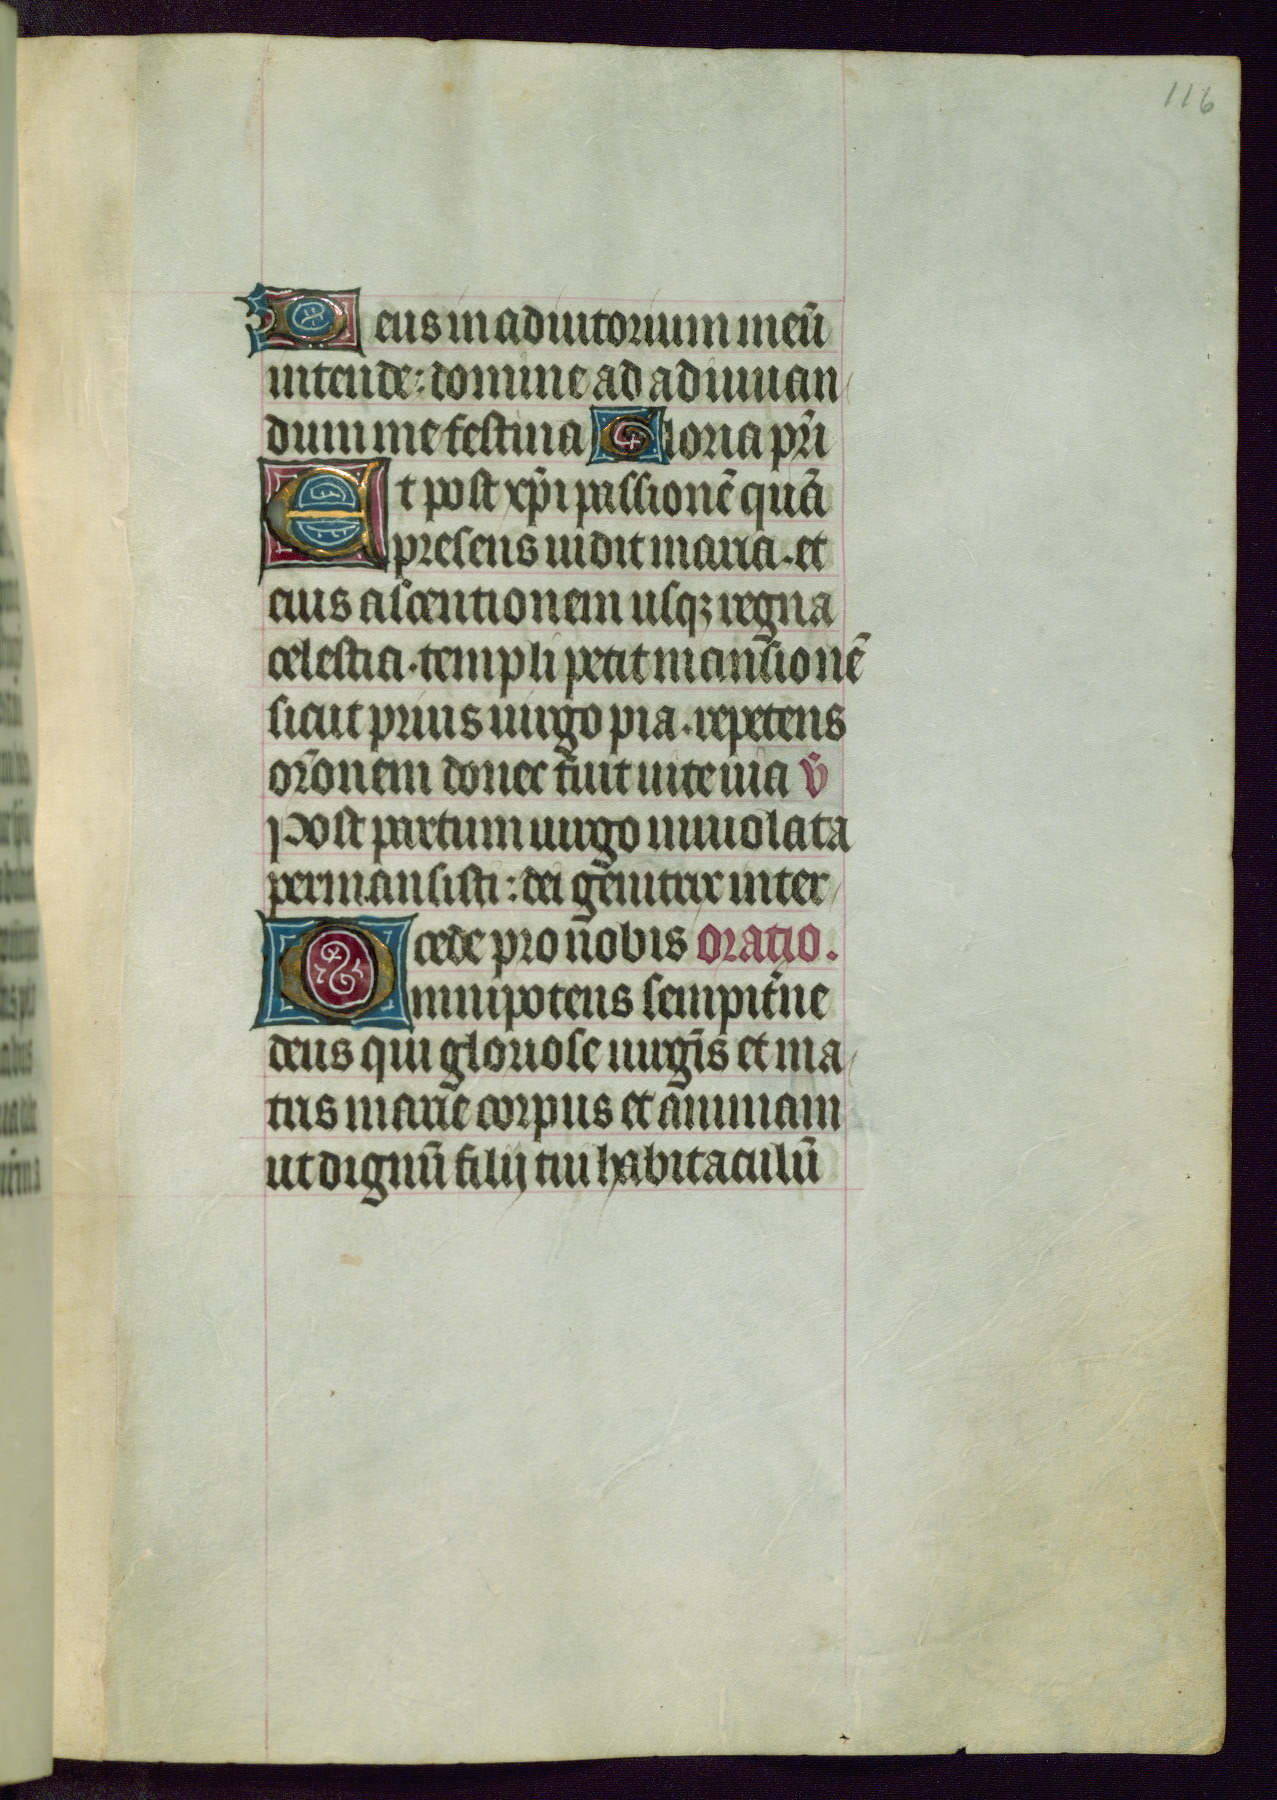 116
Deus in adiutorium meū
intende: domine ad adiuuan
dum me festina Gloria pr̄i
Et post xp̄i passionē quā
presens uidit maria. et
eius ascentionem usqꝫ regna
celestia. templi petit mansionē
sicut prius uirgo pia. repetens
or̄onem donec fuit uite uia v̄
Post partum uirgo inuiolata
permansisti: dei genitrix inter
cede pro nobis oratio.
Omnipotens sempit̄ne
deus qui gloriose uirgīs et ma
tris marie corpus et animam
ut dignū filij tui habitaculū